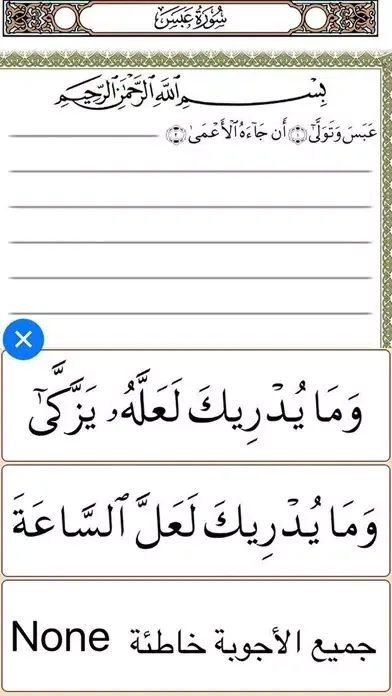 سُورَةُ عَبَسَ
بِسْمِ ٱللَّهِ ٱلرَّحْمَٰنِ ٱلرَّحِيمِ
عَبَسَ وَتَوَلَّىٰٓ ۝١ أَن جَآءَهُ ٱلْأَعْمَىٰ ۝٢
وَمَا يُدْرِيكَ لَعَلَّهُۥ يَزَّكَّىٰٓ
وَمَا يُدْرِيكَ لَعَلَّ ٱلسَّاعَةَ
جميع الأجوبة خاطئة None